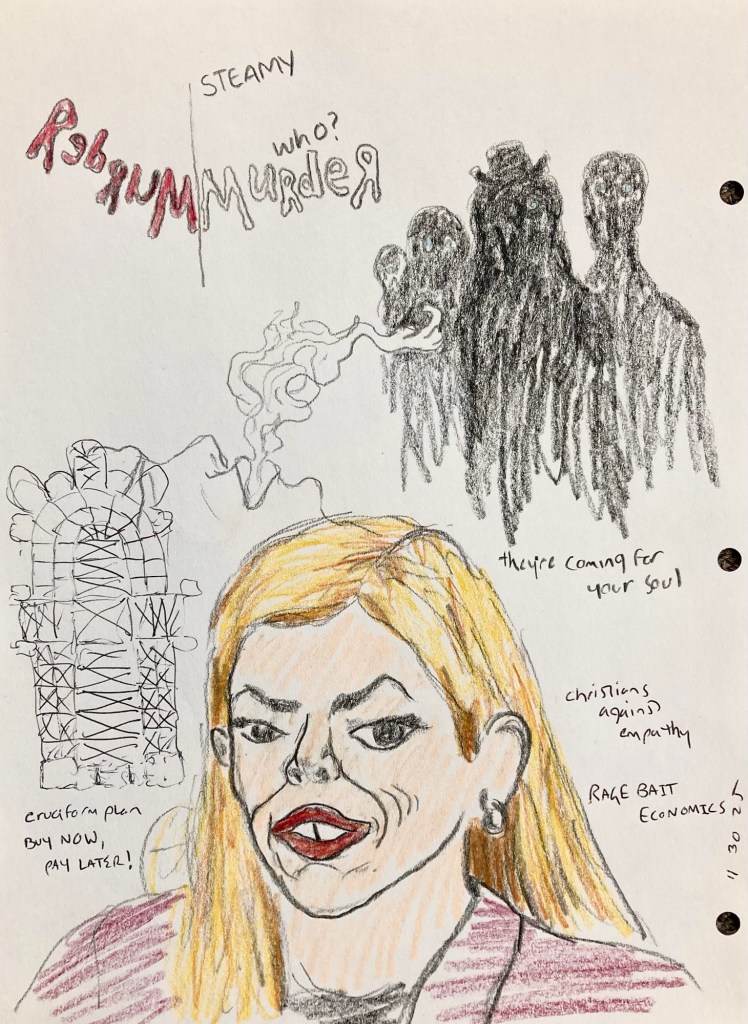 STEAMY
RebRUM MURdeR
who?
they're coming for
your soul
christians
against
empathy
RAGE BAIT
ECONOMICS
cruciform plan
BUY NOW,
PAY LATER!
11 30 25